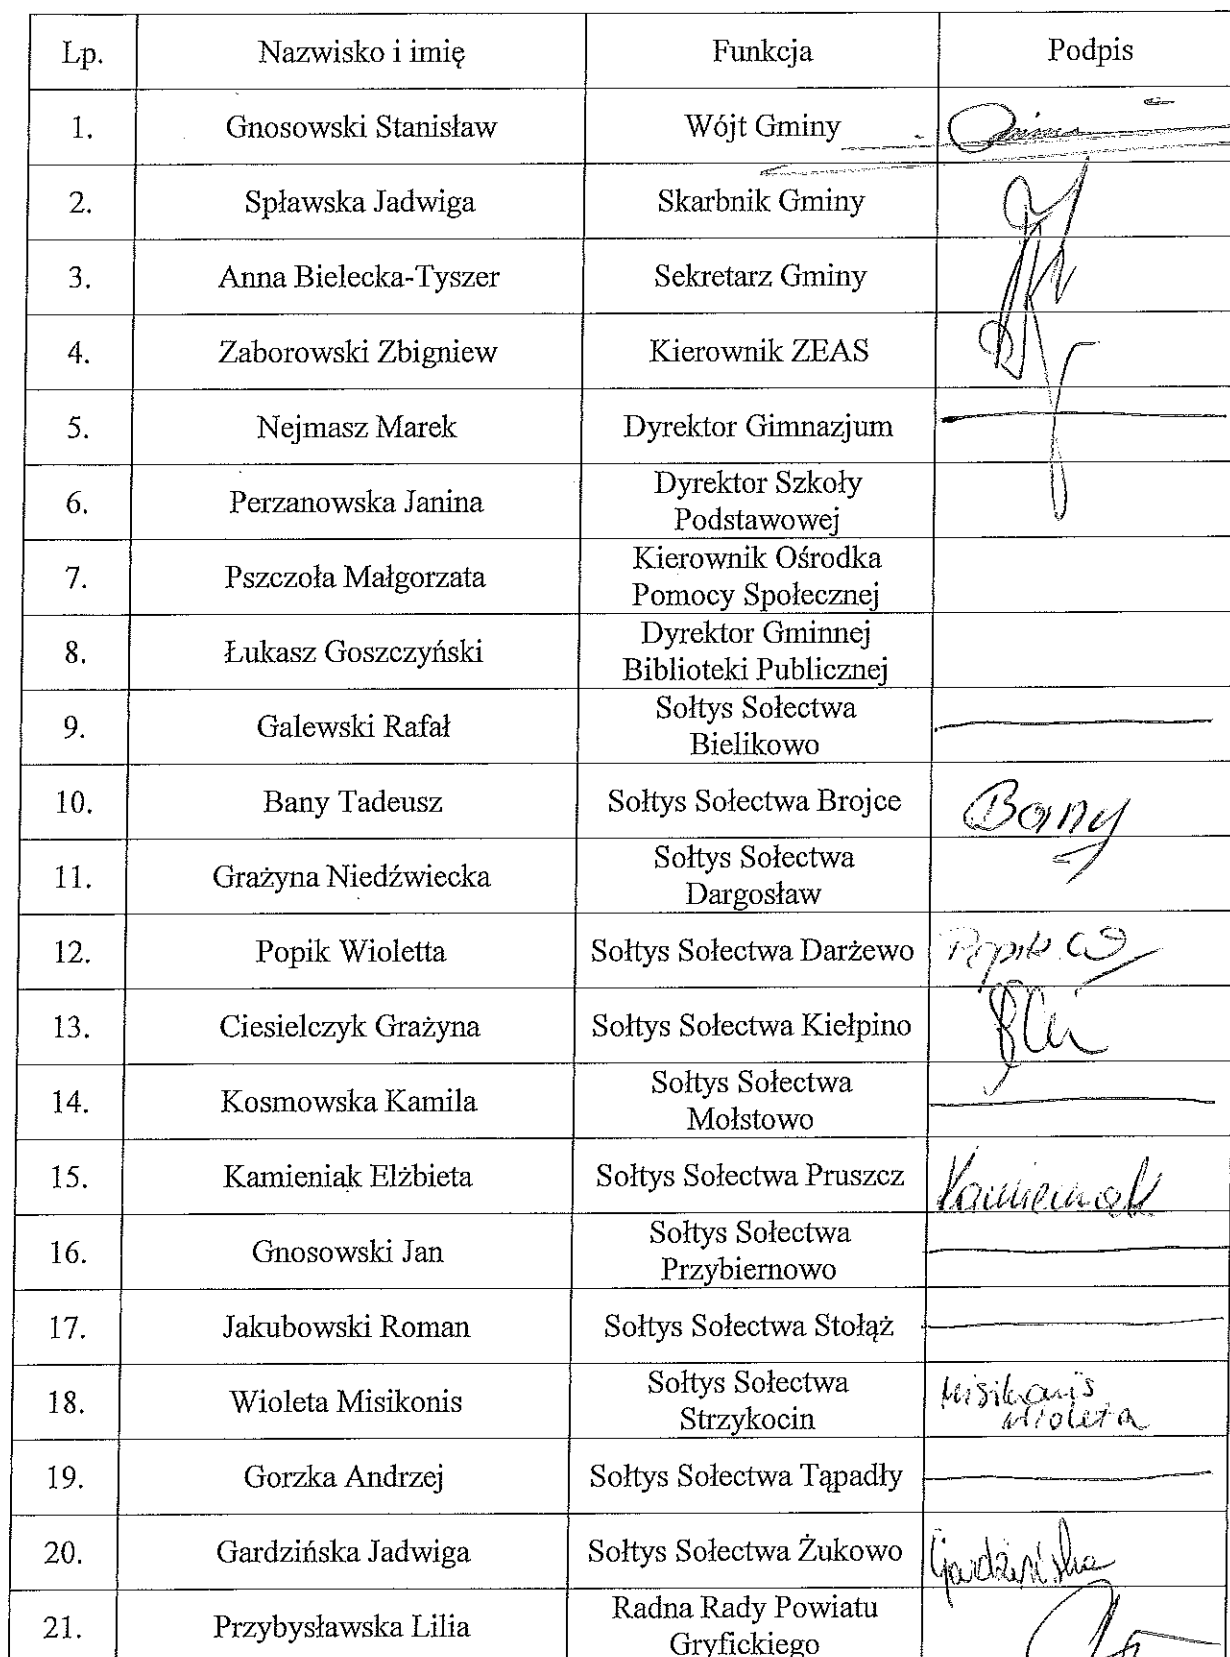 Lp. Nazwisko i imię Funkcja Podpis
1. Gnosowski Stanisław Wójt Gminy
2. Spławska Jadwiga Skarbnik Gminy
3. Anna Bielecka-Tyszer Sekretarz Gminy
4. Zaborowski Zbigniew Kierownik ZEAS
5. Nejmasz Marek Dyrektor Gimnazjum
6. Perzanowska Janina Dyrektor Szkoły
Podstawowej
7. Pszczoła Małgorzata Kierownik Ośrodka
Pomocy Społecznej
8. Łukasz Goszczyński Dyrektor Gminnej
Biblioteki Publicznej
9. Galewski Rafał Sołtys Sołectwa
Bielikowo
10. Bany Tadeusz Sołtys Sołectwa Brojce Bany
11. Grażyna Niedźwiecka Sołtys Sołectwa
Dargosław
12. Popik Wioletta Sołtys Sołectwa Darżewo Popik W
13. Ciesielczyk Grażyna Sołtys Sołectwa Kiełpino
14. Kosmowska Kamila Sołtys Sołectwa
Mołstowo
15. Kamieniak Elżbieta Sołtys Sołectwa Pruszcz Kamieniak
16. Gnosowski Jan Sołtys Sołectwa
Przybiernowo
17. Jakubowski Roman Sołtys Sołectwa Stołąż
18. Wioleta Misikonis Sołtys Sołectwa
Strzykocin Misikonis
Wioleta
19. Gorzka Andrzej Sołtys Sołectwa Tąpadły
20. Gardzińska Jadwiga Sołtys Sołectwa Żukowo Gardzińska
21. Przybysławska Lilia Radna Rady Powiatu
Gryfickiego